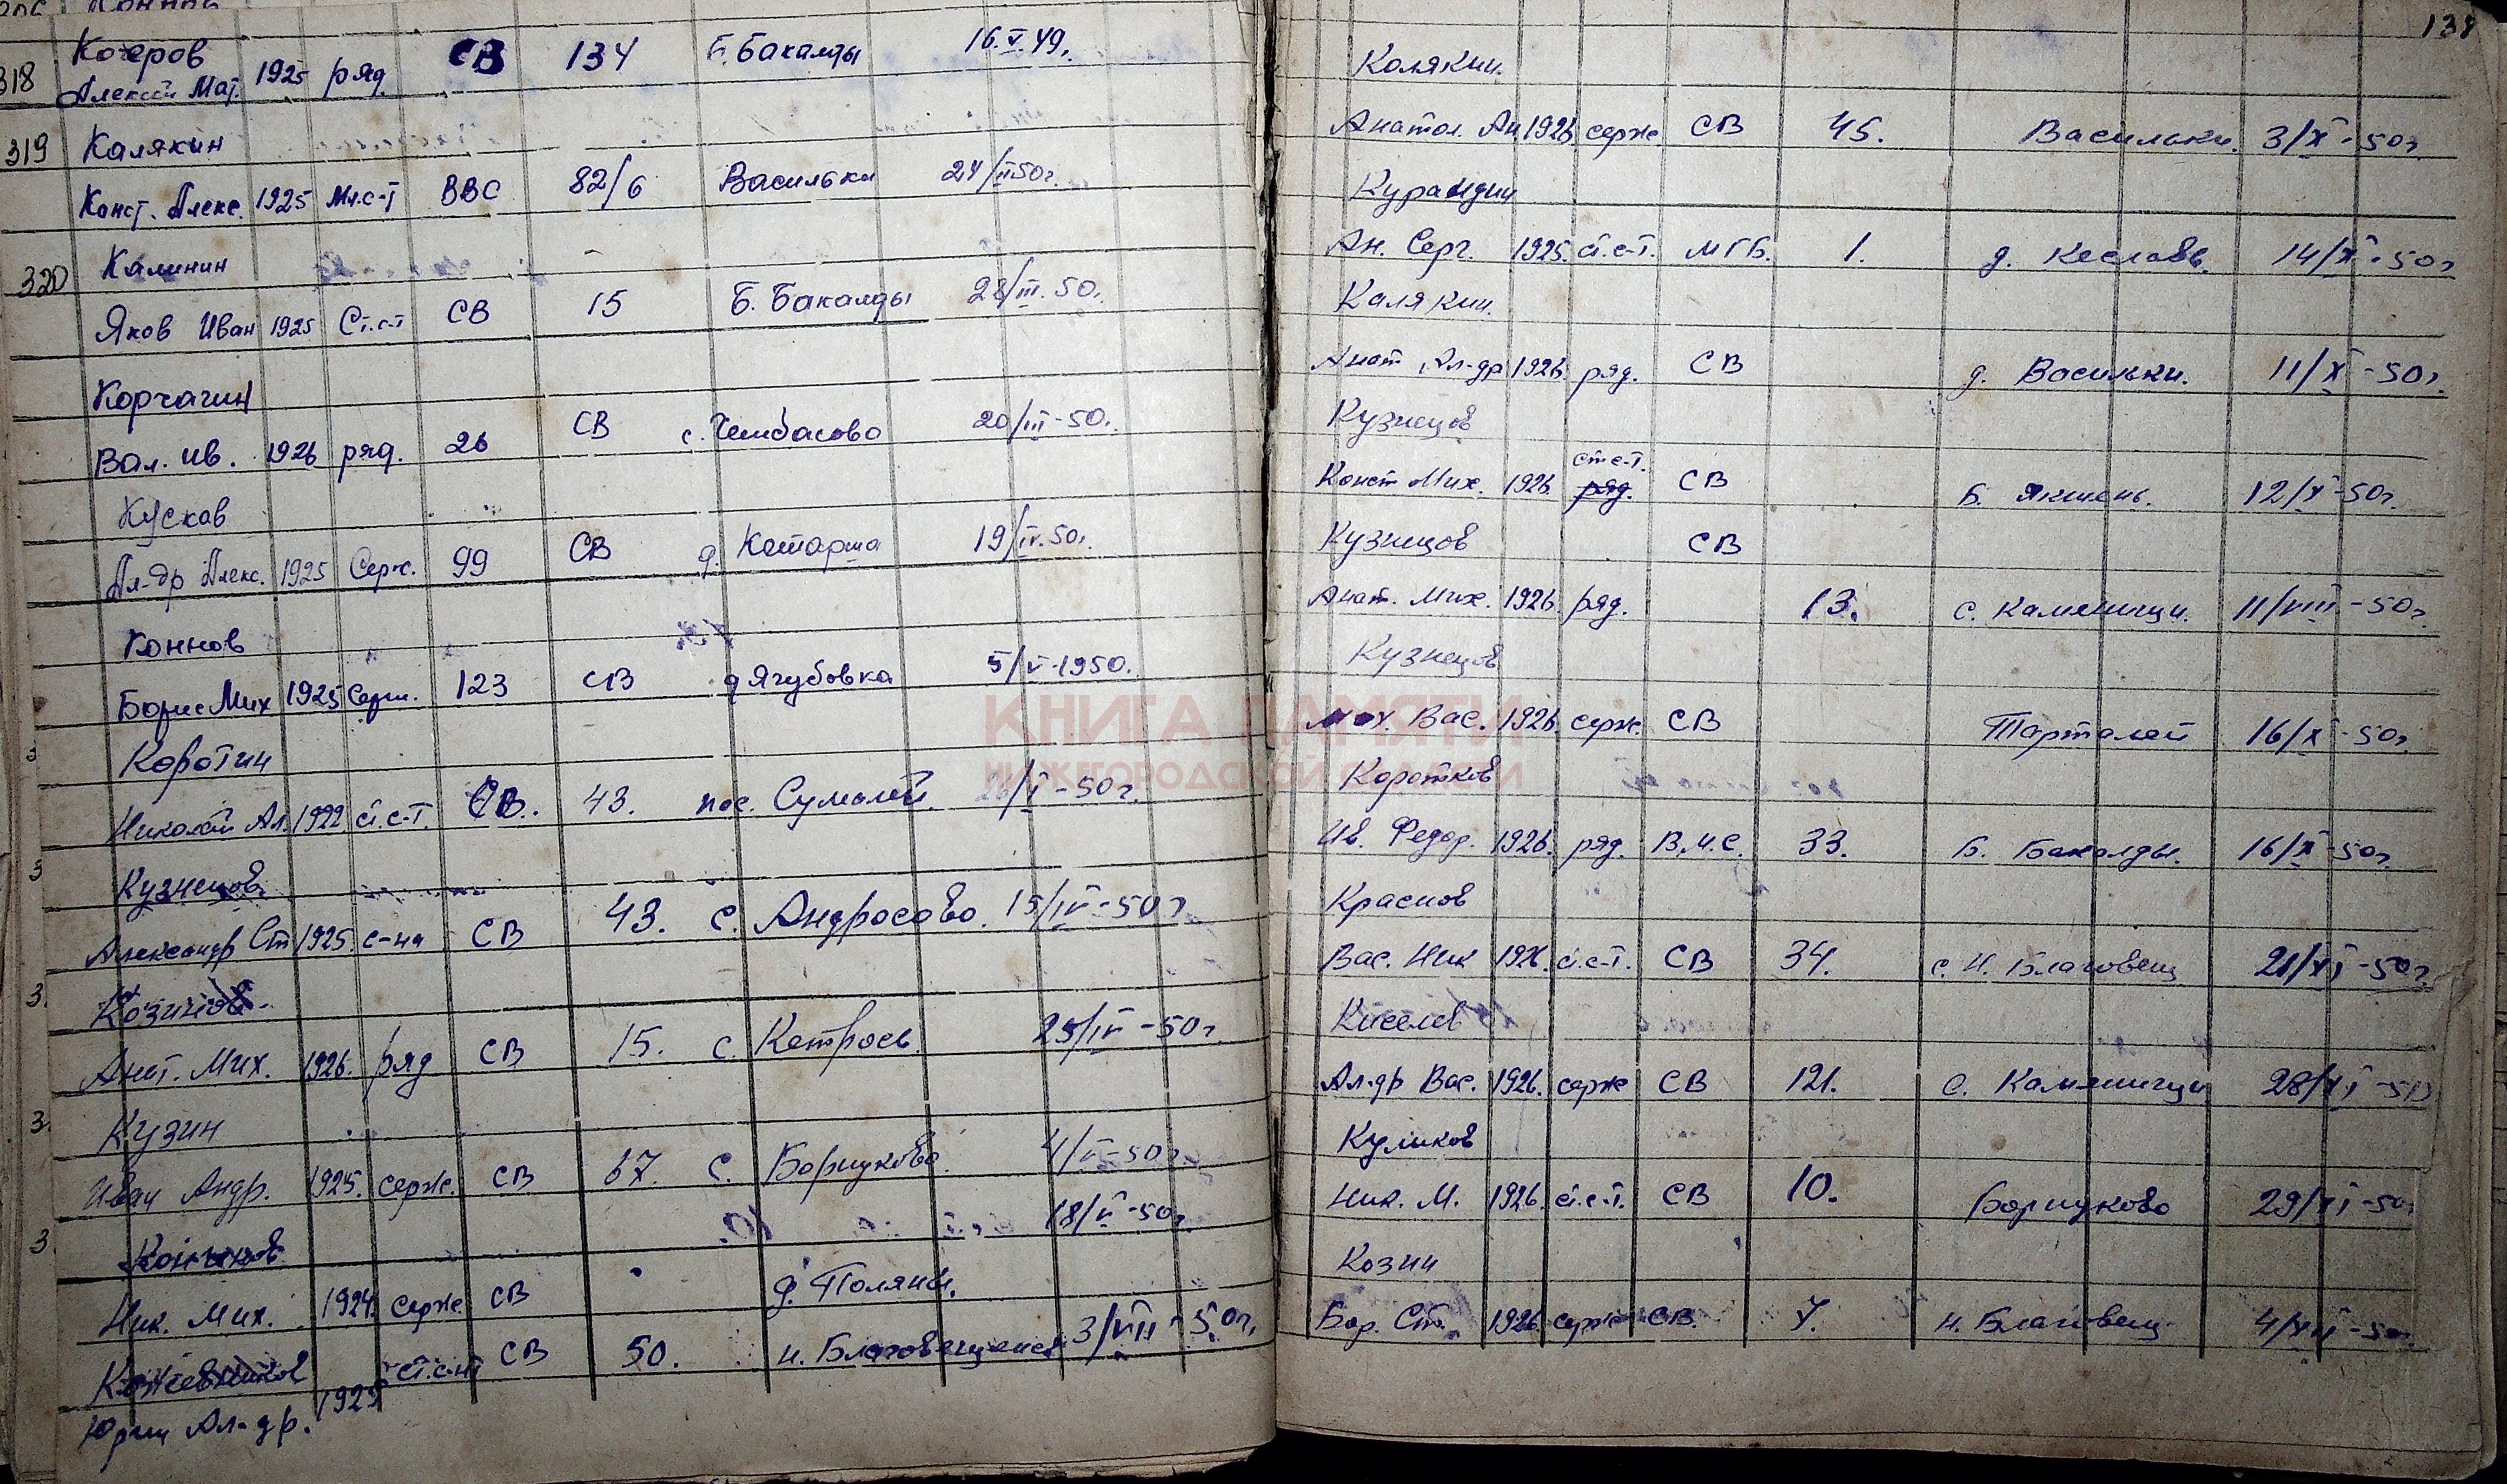 318 Кочеров
Алексей Мат. 1925 ряд. СВ 134 Б. Бакалды 16.V.49г.
319 Калякин
Конст. Алекс. 1925 Мл.с-т ВВС 82/6 Васильки 24/II 50г.
320 Калинин
Яков Иван 1925 Ст.с-т СВ 15 Б. Бакалды 28/III.50г.
Корчагин
Вал. Ив. 1926 ряд. 26 СВ с. Чембасово 20/III-50г.
Кусков
Ал-др Алекс. 1925 Серж. 99 СВ д. Катарша 19/IV.50г.
Коннов
Борис Мих 1925 Серж. 123 СВ д Ягубовка 5/V-1950г.
Коротин
Николай Ал. 1922 ст.с-т. СВ. 43. пос. Сумолей /I-50г.
Кузнецов
Александр Ст 1925. с-на СВ 43. с. Андросово. 15/IV-50г
Козинов
Анат. Мих. 1926. ряд СВ 15. с. Кетрось 25/IV-50г.
Кузин
Иван Андр. 1925. серж. СВ 67. с. Борнуково. 4/V-50г
18/V-50г.
Ник. Мих. 1924. серж. СВ д. Поляны.
Кожевников ст.с-нт СВ 50. н. Благовещенск 3/VII-50г.
Юрий Ал-др. 1925
138
Колякин.
Анатол. Ан. 1926. серж. СВ 45. Васильки. 3/X-50г.
Курандин
Ан. Серг. 1925. ст.с-т. МГБ. 1. д. Кеславь. 14/X-50г
Калякин.
Анат Ал-др 1926. ряд. СВ д. Васильки. 11/X-50г.
Кузнецов
ст с-т.
Конст Мих. 1926. ряд. СВ Б. Якшень. 12/X-50г.
Кузнецов СВ
Анат. Мих. 1926. ряд. 13. с. Каменищи. 11/VIII-50г.
Кузнецов
Мих. Вас. 1926. серж. СВ Тарталей 16/X-50г.
КНИГА ПАМЯТИ
НИЖЕГОРОДСКОЙ ОБЛАСТИ
Коротков
Ив. Федор. 1926. ряд. В.М.С. 33. Б. Бакалды. 16/X-50г.
Краснов
Вас. Ник 1926. ст.с-т. СВ 34. с. Н. Благовещ 21/XI-50г.
Киселев
Ал-др Вас. 1926. серж СВ 121. с. Каменищи 28/XI-50
Куликов
Ник. М. 1926. ст.с-т. СВ 10. Борнуково 29/XI-50г
Козин
Бор. Ст. 1926. серж СВ. 7. н. Благовещ. 4/XII-50г.